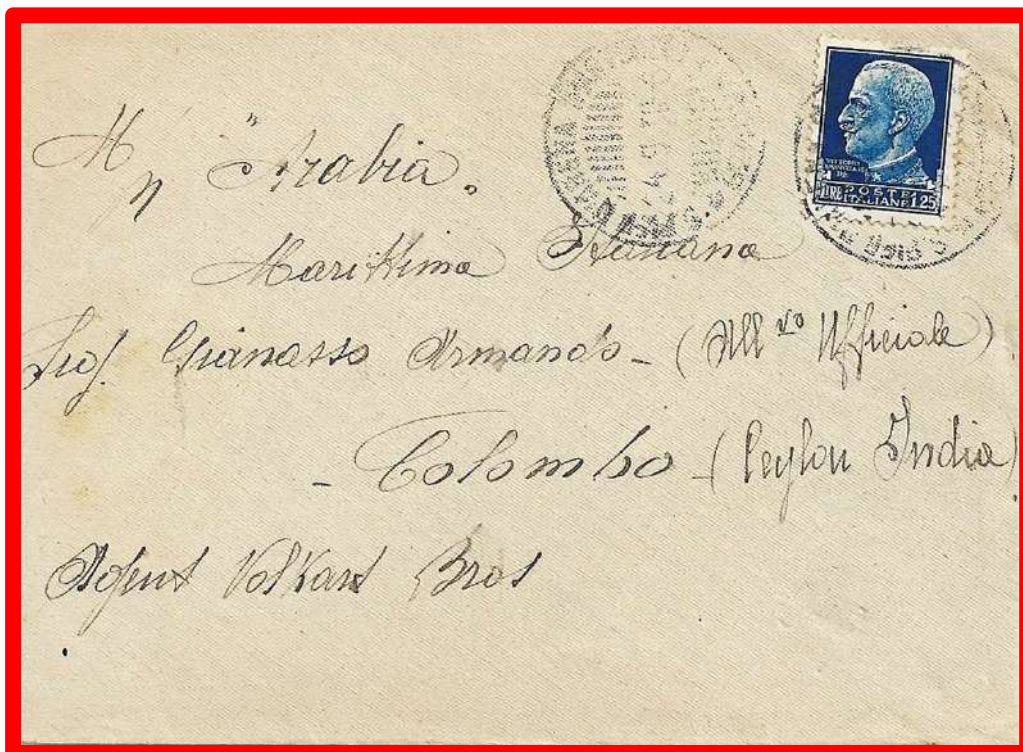 M/n "Arabia"
Marittima Italiana
Sig. Gianasso Armando - (All vo Ufficiale)
- Colombo - (Ceylon India)
Agent Volkart Bros
VITTORIO EMANUELE III RE
LIRE POSTE ITALIANE 1,25